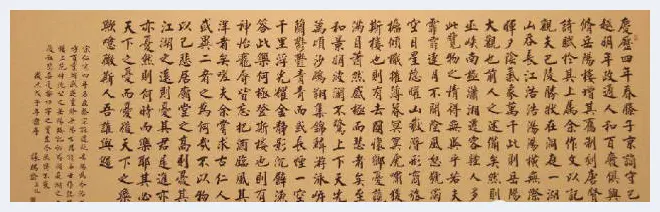 慶曆四年春滕子京謫守巴
越明年政通人和百廢俱興
脩岳陽樓增其舊制刻唐賢
詩賦於其上屬余作文以記
觀夫巴陵勝狀在洞庭一湖
山吞長江浩浩湯湯橫無際
暉夕陰氣象萬千此則岳陽
大觀也前人之述備矣然則
巫峽南極瀟湘遷客騷人多
此覽物之情得無異乎若夫
霏霏連月不開陰風怒號濁
空日星隱曜山岳潛形商旅
檣傾楫摧薄暮冥冥虎嘯猿
斯樓也則有去國懷鄉憂讒
滿目蕭然感極而悲者矣至
和景明波瀾不驚上下天光
萬頃沙鷗翔集錦鱗游泳岸
蘭鬱鬱青青而或長煙一空
千里浮光耀金靜影沉璧漁
答此樂何極登斯樓也則有
神怡寵辱皆忘把酒臨風其
洋者矣嗟夫余嘗求古仁人
或異二者之為何哉不以物
以己悲居廟堂之高則憂其
江湖之遠則憂其君是進亦
亦憂然則何時而樂耶其必
天下之憂而憂後天下之樂
歟噫微斯人吾誰與歸